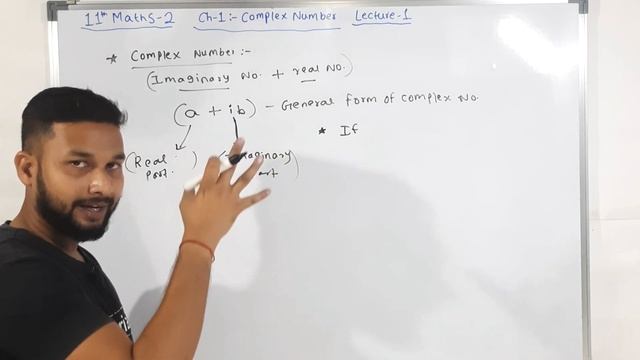 11th Maths-2 Ch-1:- Complex Number Lecture-1
* Complex Number:-
(Imaginary No. + real No.)
(a + ib) - General form of complex No.
* If
(Real part.) (Imaginary